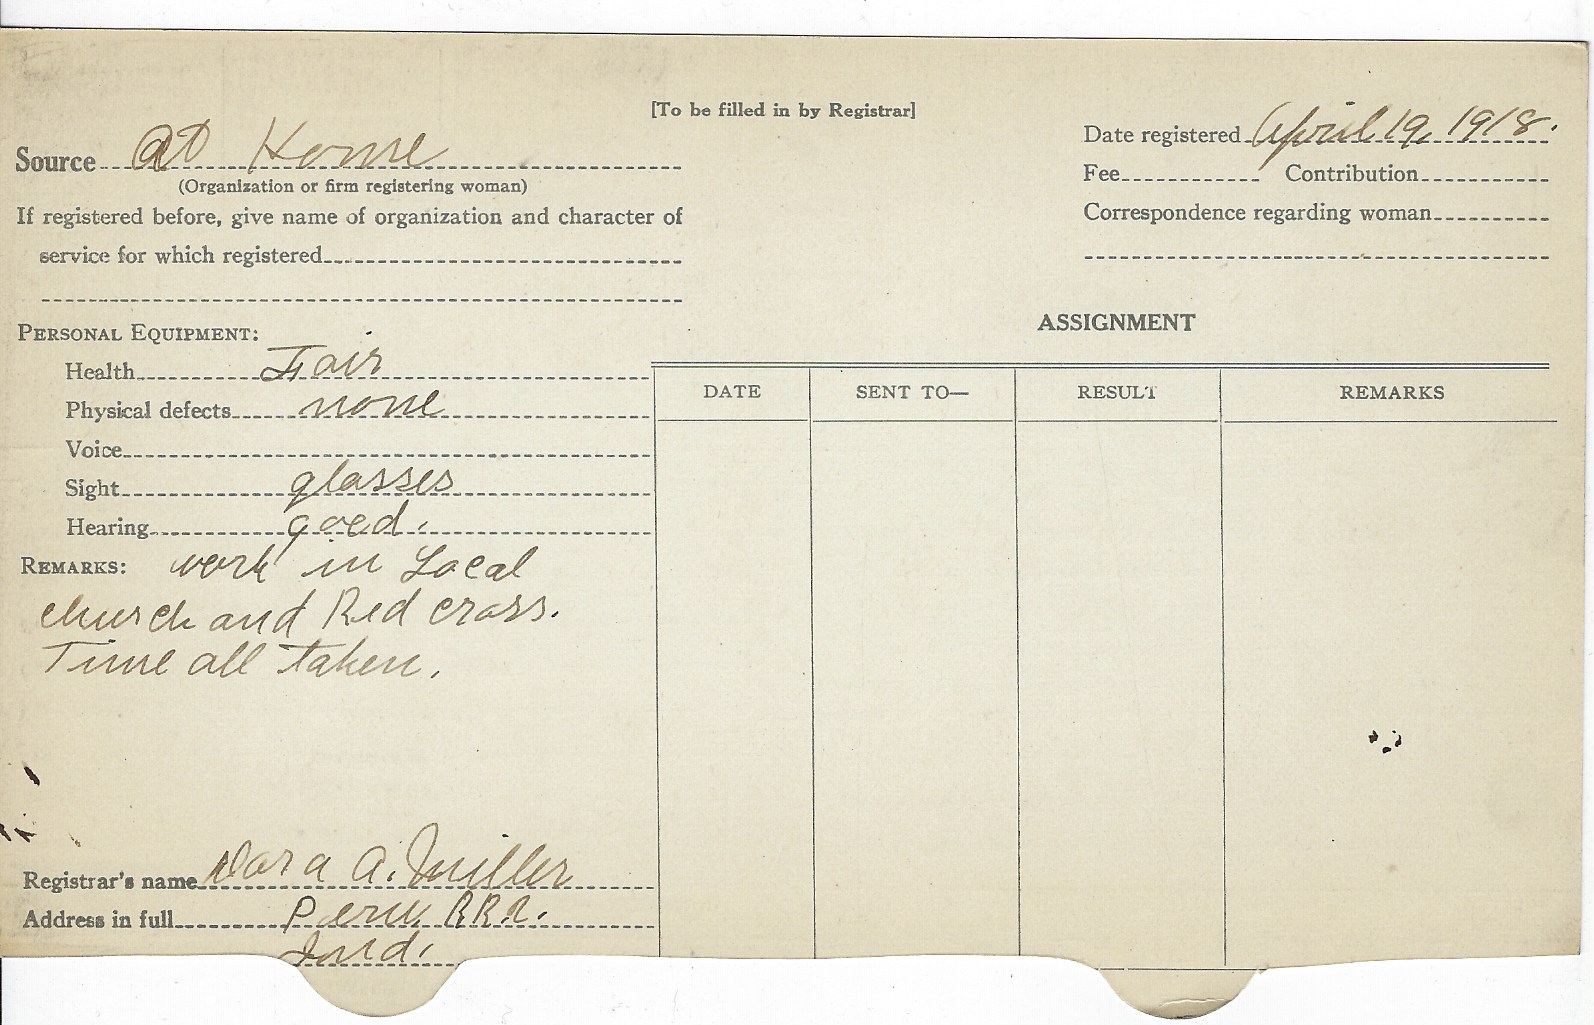 [To be filled in by Registrar]
Source At Home
(Organization or firm registering woman)
If registered before, give name of organization and character of
service for which registered
Date registered April 19, 1918.
Fee Contribution
Correspondence regarding woman
PERSONAL EQUIPMENT:
Health Fair
Physical defects none
Voice
Sight glasses
Hearing good.
REMARKS: work in Local
church and Red cross.
Time all taken.
Registrar's name Dora A. Miller
Address in full Peru R.R.
Ind.
ASSIGNMENT
DATE SENT TO— RESULT REMARKS